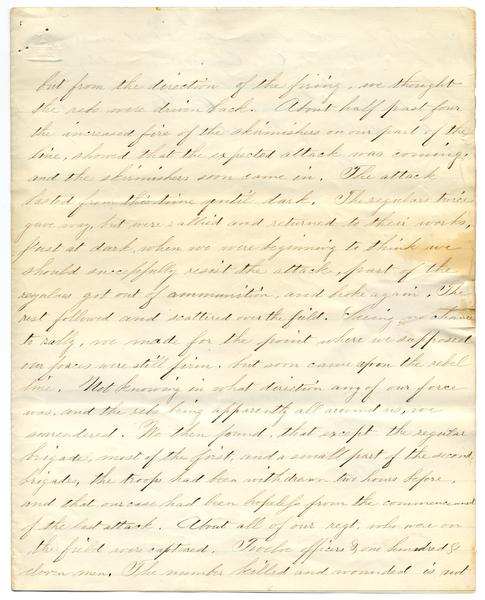 but from the direction of the firing, we thought
the rebs were driven back. About half past four
the increased fire of the skirmishers on our part of the
line, showed that the expected attack was coming,
and the skirmishers soon came in. The attack
lasted from this time until dark. The regulars twice
gave way, but were rallied and returned to their works,
Just at dark, when we were beginning to think we
should successfully resist the attack, part of the
regulars got out of ammunition, and broke again. The
rest followed and scattered over the field. Seeing no chance
to rally, we made for the point where we supposed
our forces were still firm, but soon came upon the rebel
line. Not knowing in what direction any of our force
was, and the rebs being apparently all around us, we
surrendered. We then found, that except the regular
brigade, most of the first, and a small part of the second
brigade, the troops had been withdrawn two hours before,
and that our case had been hopeless from the commencement
of the last attack. About all of our regt, who were on
the field were captured. Twelve officers & one hundred &
eleven men. The number killed and wounded is not